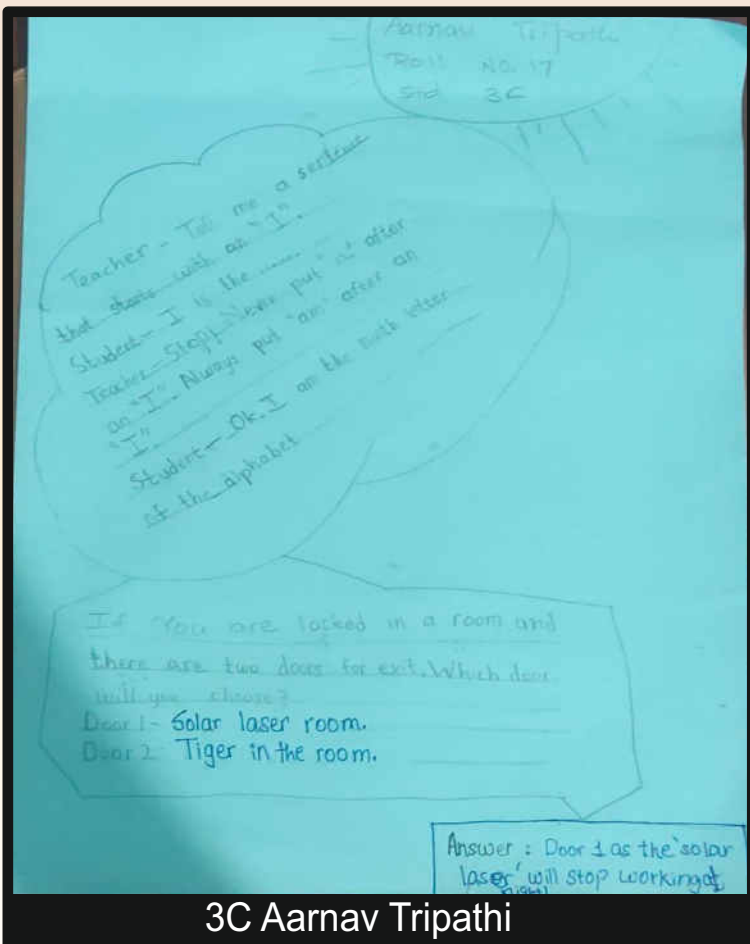 Aarnav Tripathi
Roll No. 17
Std 3C
Teacher - Tell me a sentence
that starts with an "I".
Student - I is the ........
Teacher - Stop! Never put 'is' after
an "I". Always put 'am' after an
"I".
Student - Ok. I am the ninth letter
of the alphabet
If You are locked in a room and
there are two doors for exit. Which door
will you choose?
Door 1 - Solar laser room.
Door 2 Tiger in the room.
Answer : Door 1 as the 'solar
laser' will stop working at
night
3C Aarnav Tripathi